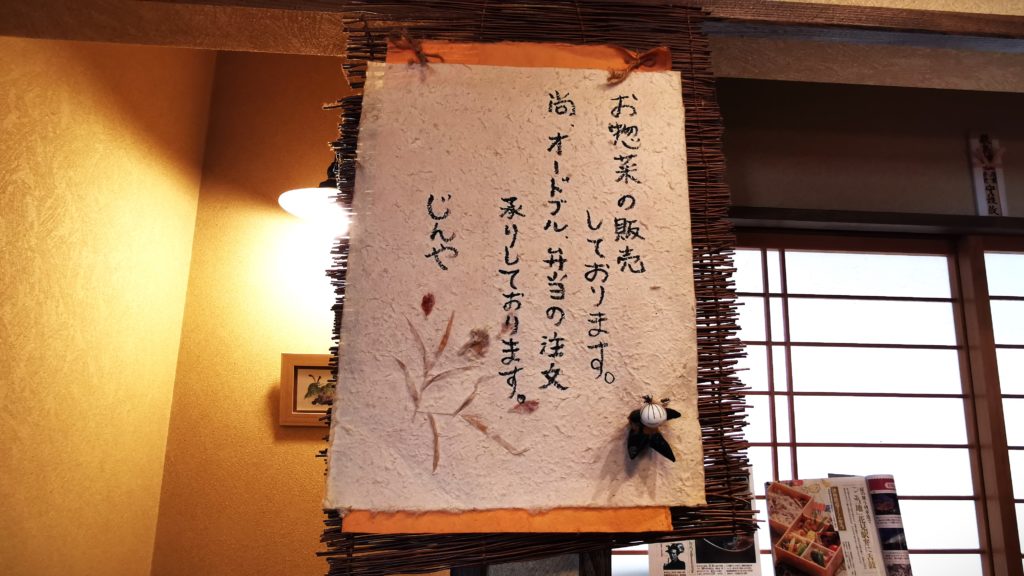 お惣菜の販売
しております。
尚、オードブル、弁当の注文
承りしております。
じんや